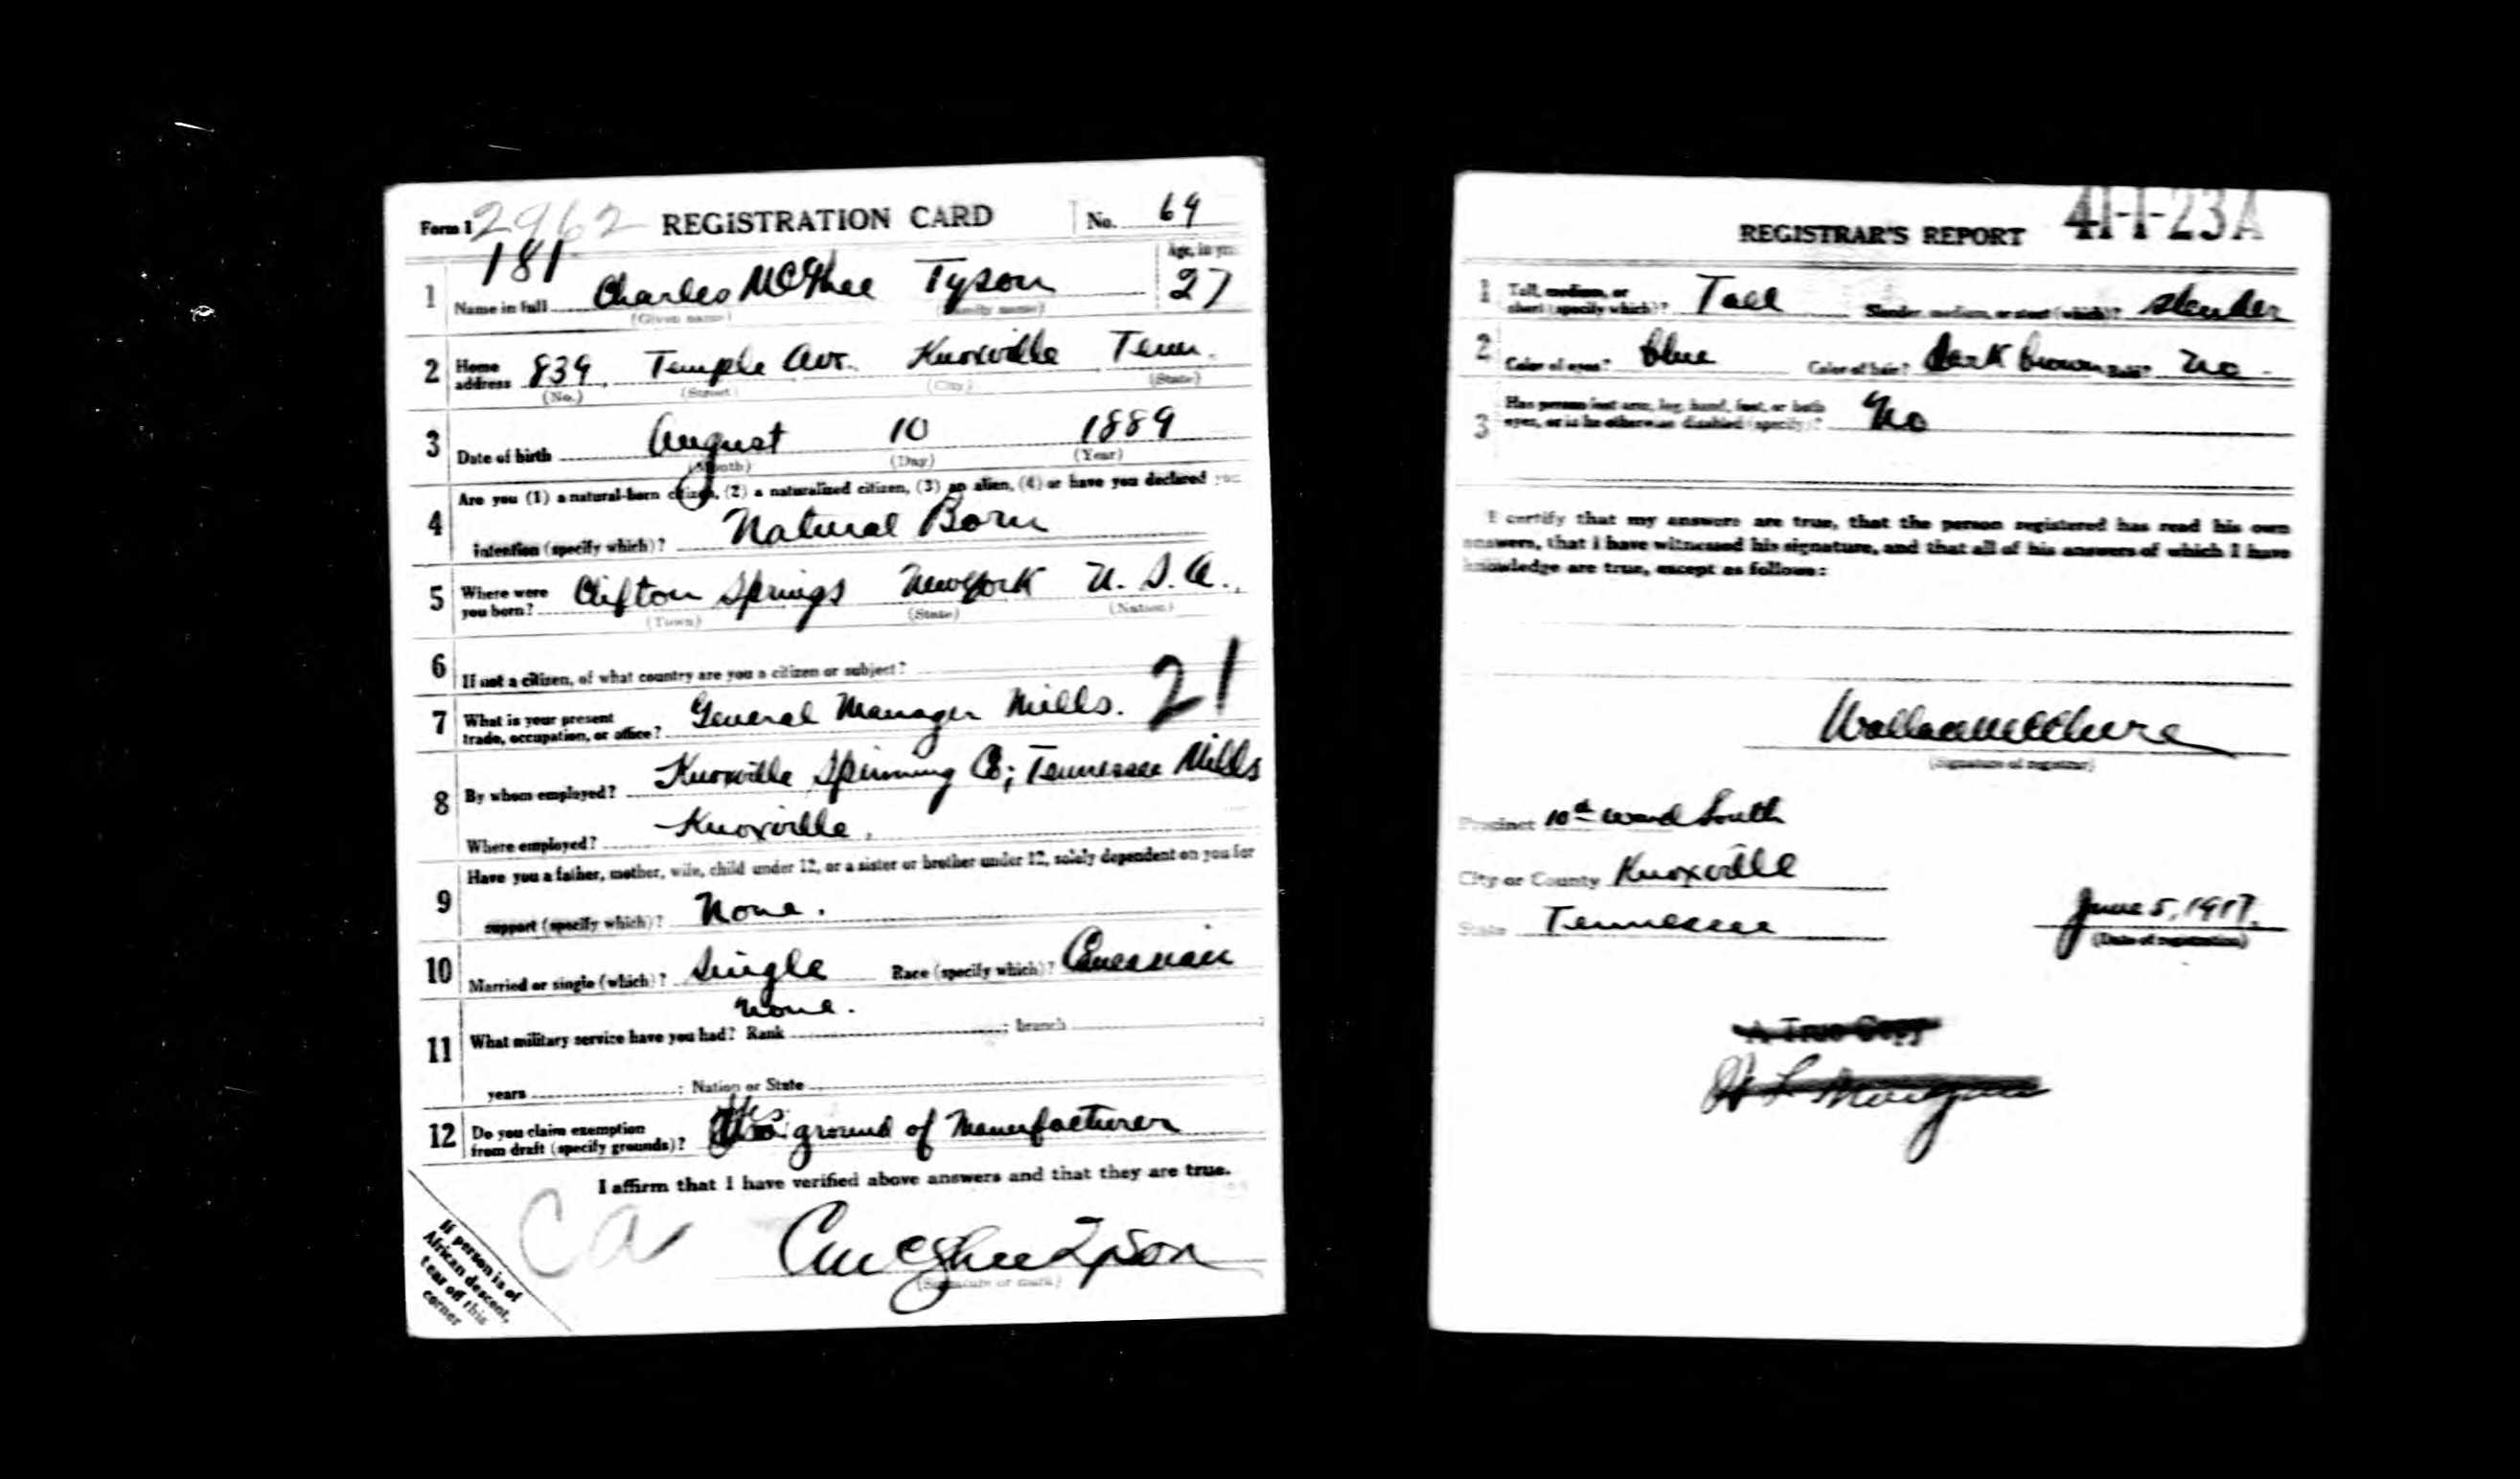 Form 1 2962 REGISTRATION CARD No. 69
181
1 Name in full Charles McGhee Tyson Age, in yrs. 27
(Given name) (Family name)
2 Home address 839 Temple Ave. Knoxville Tenn.
(No.) (Street) (City) (State)
3 Date of birth August 10 1889
(Month) (Day) (Year)
4 Are you (1) a natural-born citizen, (2) a naturalized citizen, (3) an alien, (4) or have you declared your
intention (specify which)? Natural Born
5 Where were you born? Clifton Springs New York U. S. A.
(Town) (State) (Nation)
6 If not a citizen, of what country are you a citizen or subject?
7 What is your present trade, occupation, or office? General Manager Mills. 21
8 By whom employed? Knoxville Spinning Co; Tennessee Mills
Where employed? Knoxville,
9 Have you a father, mother, wife, child under 12, or a sister or brother under 12, solely dependent on you for
support (specify which)? None.
10 Married or single (which)? Single Race (specify which)? Caucasian
none.
11 What military service have you had? Rank ; branch ;
years ; Nation or State
12 Do you claim exemption from draft (specify grounds)? Yes ground of Manufacturer
I affirm that I have verified above answers and that they are true.
Ca
C McGhee Tyson
(Signature or mark)
If person is of
African descent,
tear off this
corner
REGISTRAR'S REPORT 41-1-23A
1 Tall, medium, or short (specify which)? Tall Slender, medium, or stout (which)? slender
2 Color of eyes? blue Color of hair? dark brown Bald? no.
3 Has person lost arm, leg, hand, foot, or both
eyes, or is he otherwise disabled (specify)? No
I certify that my answers are true, that the person registered has read his own
answers, that I have witnessed his signature, and that all of his answers of which I have
knowledge are true, except as follows:
Wallace McClure
(Signature of registrar)
Precinct 10th Ward South
City or County Knoxville
State Tennessee June 5, 1917.
(Date of registration)
A True Copy